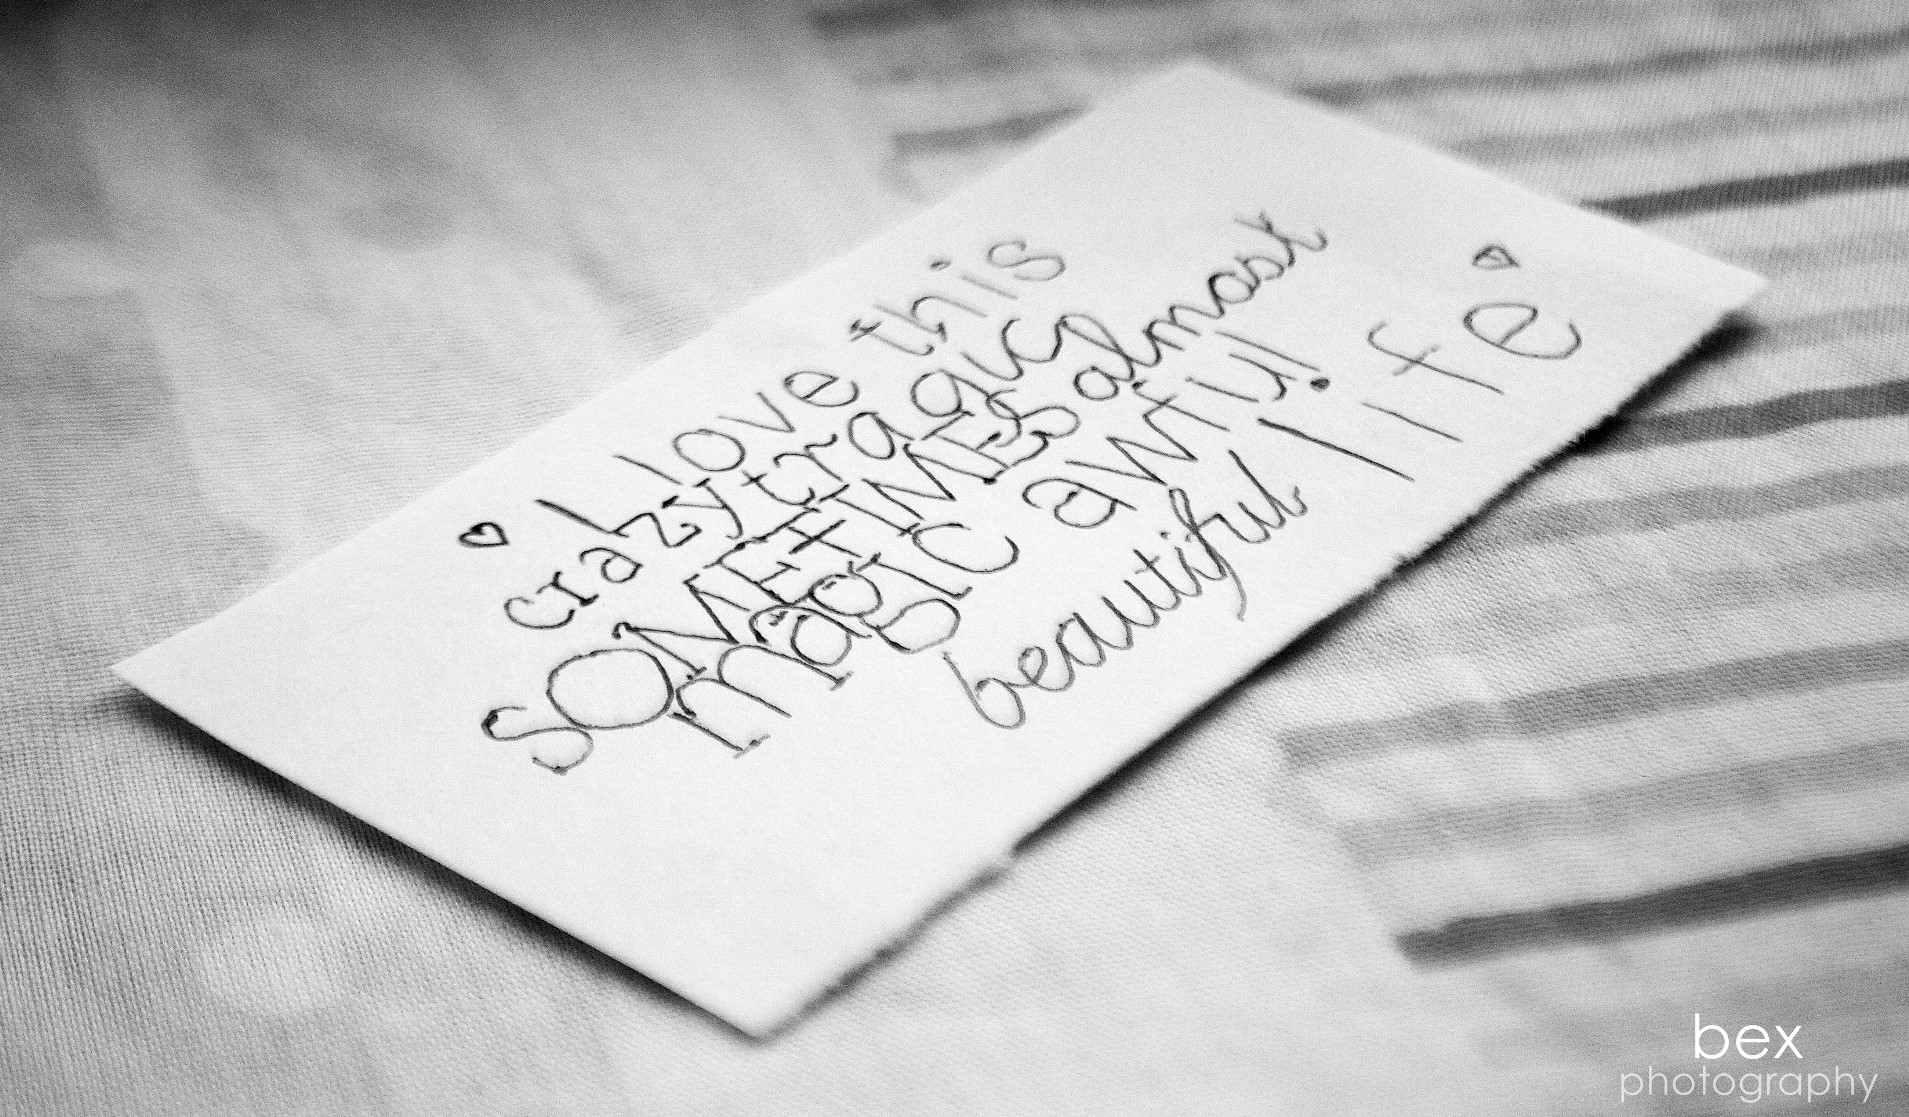 ♡ I love this
crazy tragic
SOMETIMES almost
magic awful!
beautiful life ♡
bex
photography